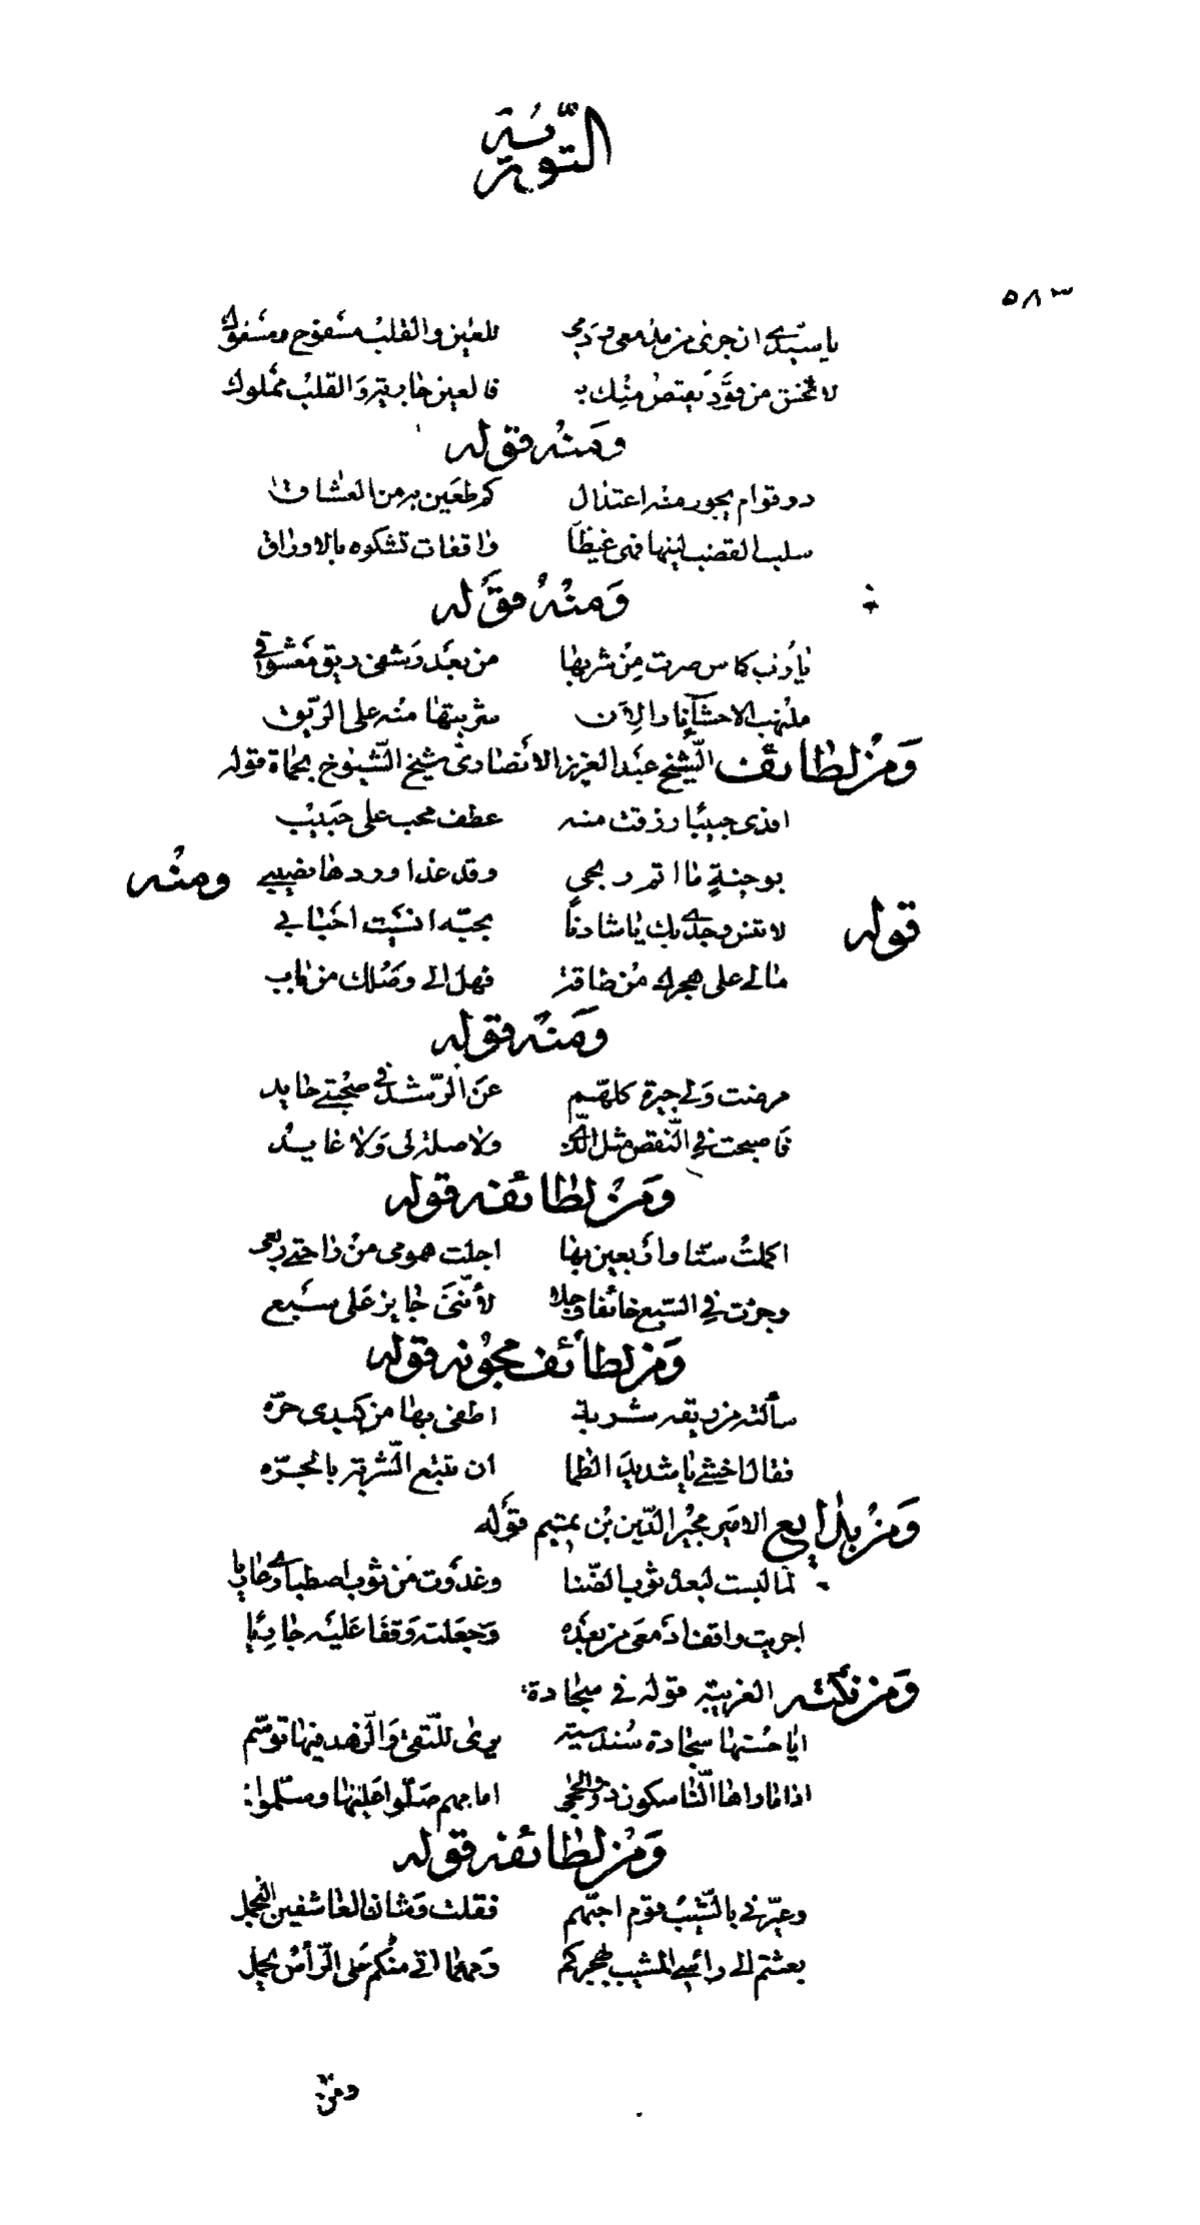 التورية
٥٨٣
يا سيدي ان جرى من مدمعي ودمي للعين والقلب مسفوح ومسفوك
لا تخش من قود يقتص منك به فالعين جارية والقلب مملوك
ومنه قوله
ذو قوام يجور منه اعتدال كم طعين به من العشاق
سلب القضب لينها فهي غيظا واقفات تشكوه بالاوراق
ومنه قوله
يا رب كاس صرت من شربها من بعد رشفي ريق معشوقي
ملتهب الاحشاء نادا لان شربتها منه على الريق
ومن لطائف الشيخ عبد العزيز الانصارى شيخ الشيوخ بحماة قوله
افدى حبيبا رزقت منه عطف محب على حبيب
بوجنة ما اتم ربحي وقد غدا وردها نصيبي ومنه
قوله لا تنس وجدي بك يا شادنا بحبه انسيت احبابي
مالي على هجرك من طاقة فهل الى وصلك من باب
ومنه قوله
مرضت ولي جيرة كلهم عن الرشد في صحبتي حايد
فاصبحت في النقص مثل الذي ولا صلة لى ولا عايد
ومن لطائفه قوله
اكملت ستا واربعين بها اجلت همومى من راحتي ربعى
وجزت في السبع خائفا وجلا لأنني جايز على سبع
ومن لطائف مجونه قوله
سألته من ريقه شربة اطفى بها من كبدى حره
فقال اخشى يا شديد الظما ان تتبع الشربة بالجره
ومن بدايع الامير مجير الدين بن تميم قوله
لما لبست لبعده ثوب الضنا وغدوت من ثوب اصطباري عاريا
اجريت واقف ادمعى من بعده وجعلته وقفا عليه جاريا
ومن نكته الغريبة قوله في سجادة
ايا حسنها سجادة سندسية يرى للتقى والزهد فيها توسم
اذا ما راها الناسكون ذوو الحجى امامهم صلوا عليها وسلموا
ومن لطائفه قوله
وعيرني بالشيب قوم احبهم فقلت وشان العاشقين التجمل
بعثتم الى راسي المشيب بهجركم ومهما اتى منكم على الرأس يحمل
ومن